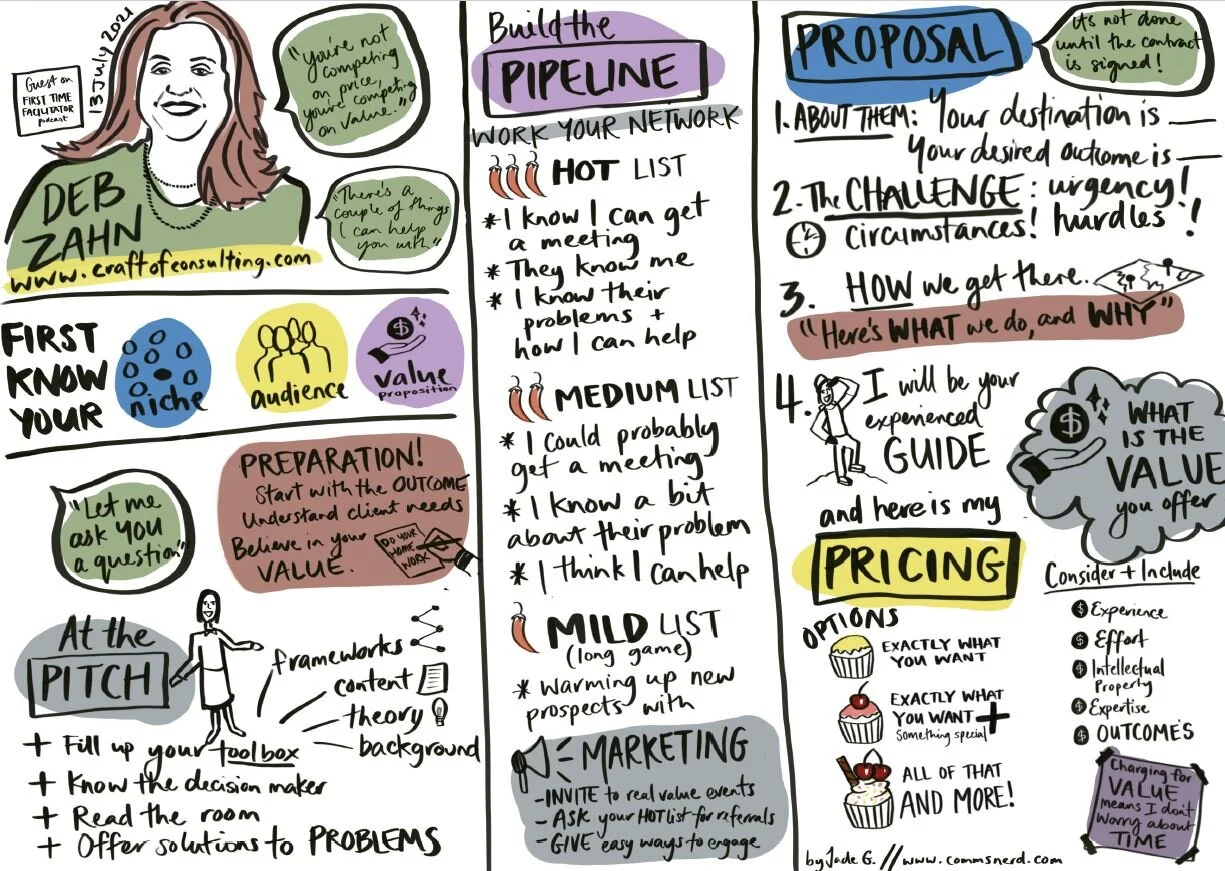 Guest on
FIRST TIME
FACILITATOR
podcast
13 July 2021
"You're not
competing
on price,
you're competing
on value."
DEB
ZAHN
"There's a
couple of things
I can help
you with"
www.craftofconsulting.com
FIRST
KNOW
YOUR
niche
audience
value
proposition
PREPARATION!
Start with the OUTCOME
Understand client needs
Believe in your
VALUE.
DO YOUR
HOME
WORK
"Let me
ask YOU
a question"
At the
PITCH
frameworks
content
theory
background
+ Fill up your toolbox
+ Know the decision maker
+ Read the room
+ Offer solutions to PROBLEMS
Build the
PIPELINE
WORK YOUR NETWORK
HOT LIST
* I know I can get
a meeting
* They know me
* I know their
problems +
how I can help
MEDIUM LIST
* I could probably
get a meeting
* I know a bit
about their problem
* I think I can help
MILD LIST
(long game)
* warming up new
prospects with
MARKETING
- INVITE to real value events
- ASK your HOT LIST for referrals
- GIVE easy ways to engage
PROPOSAL
it's not done
until the contract
is signed!
1. ABOUT THEM: Your destination is __
Your desired outcome is __
2. The CHALLENGE: urgency!
circumstances! hurdles!
3. HOW we get there.
"Here's WHAT we do, and WHY"
4. I will be your
experienced
GUIDE
and here is my
PRICING
WHAT
IS THE
VALUE
you offer
OPTIONS
EXACTLY WHAT
YOU WANT
EXACTLY WHAT
YOU WANT +
Something special
ALL OF THAT
AND MORE!
Consider + Include
$ Experience
$ Effort
$ Intellectual
Property
$ Expertise
$ OUTCOME'S
Charging for
VALUE
means I don't
worry about
TIME
by Jade G. // www.commsnerd.com